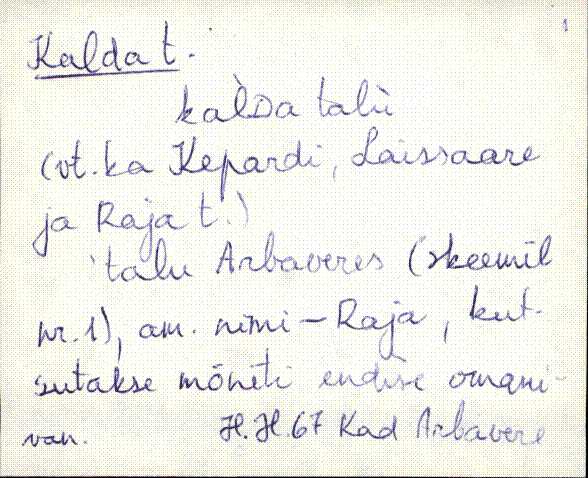 1
Kalda t.
kaLDa talù
(vt. ka Kepardi, Laissaare
ja Raja t.)
talu Arbaveres (skeemil
nr. 1), am. nimi – Raja, kut-
sutakse mõniti endise omani-
van.
H.H. 67 Kad Arbavere